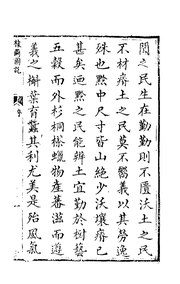 匱之民生在勤勤則不匱沃土之民
不材瘠土之民莫不嚮義以其勞逸
殊也黔中尺寸皆山絶少沃壤瘠已
甚矣迺黔之民能辨土宜勤於樹藝
五穀而外杉桐樁蠟物産蕃滋而遵
義之槲葉育蠶其利尤美是殆風氣